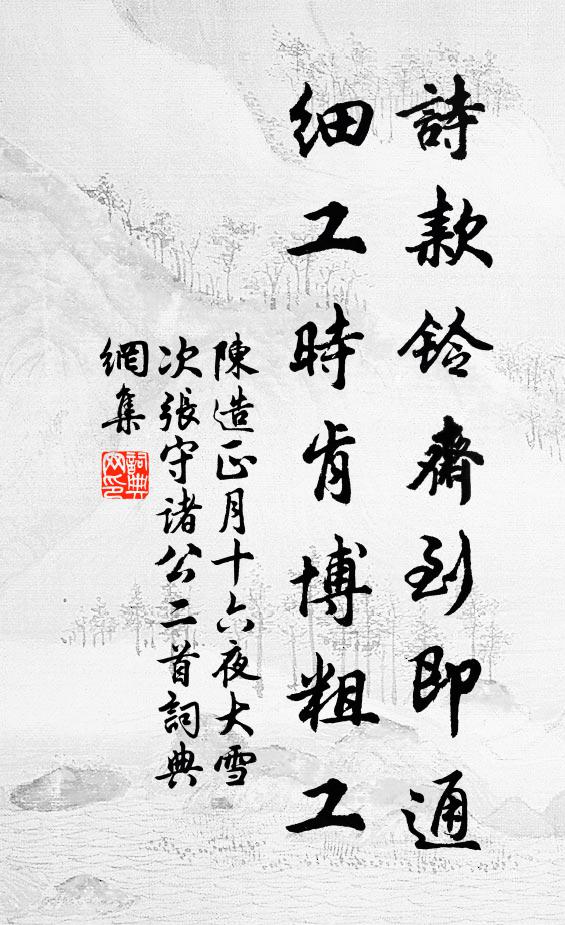 詩款鈴齋到即通
細工時肯博粗工
陳造正月十六夜大雪
次張守諸公二首詞典
網集
詞典
网印